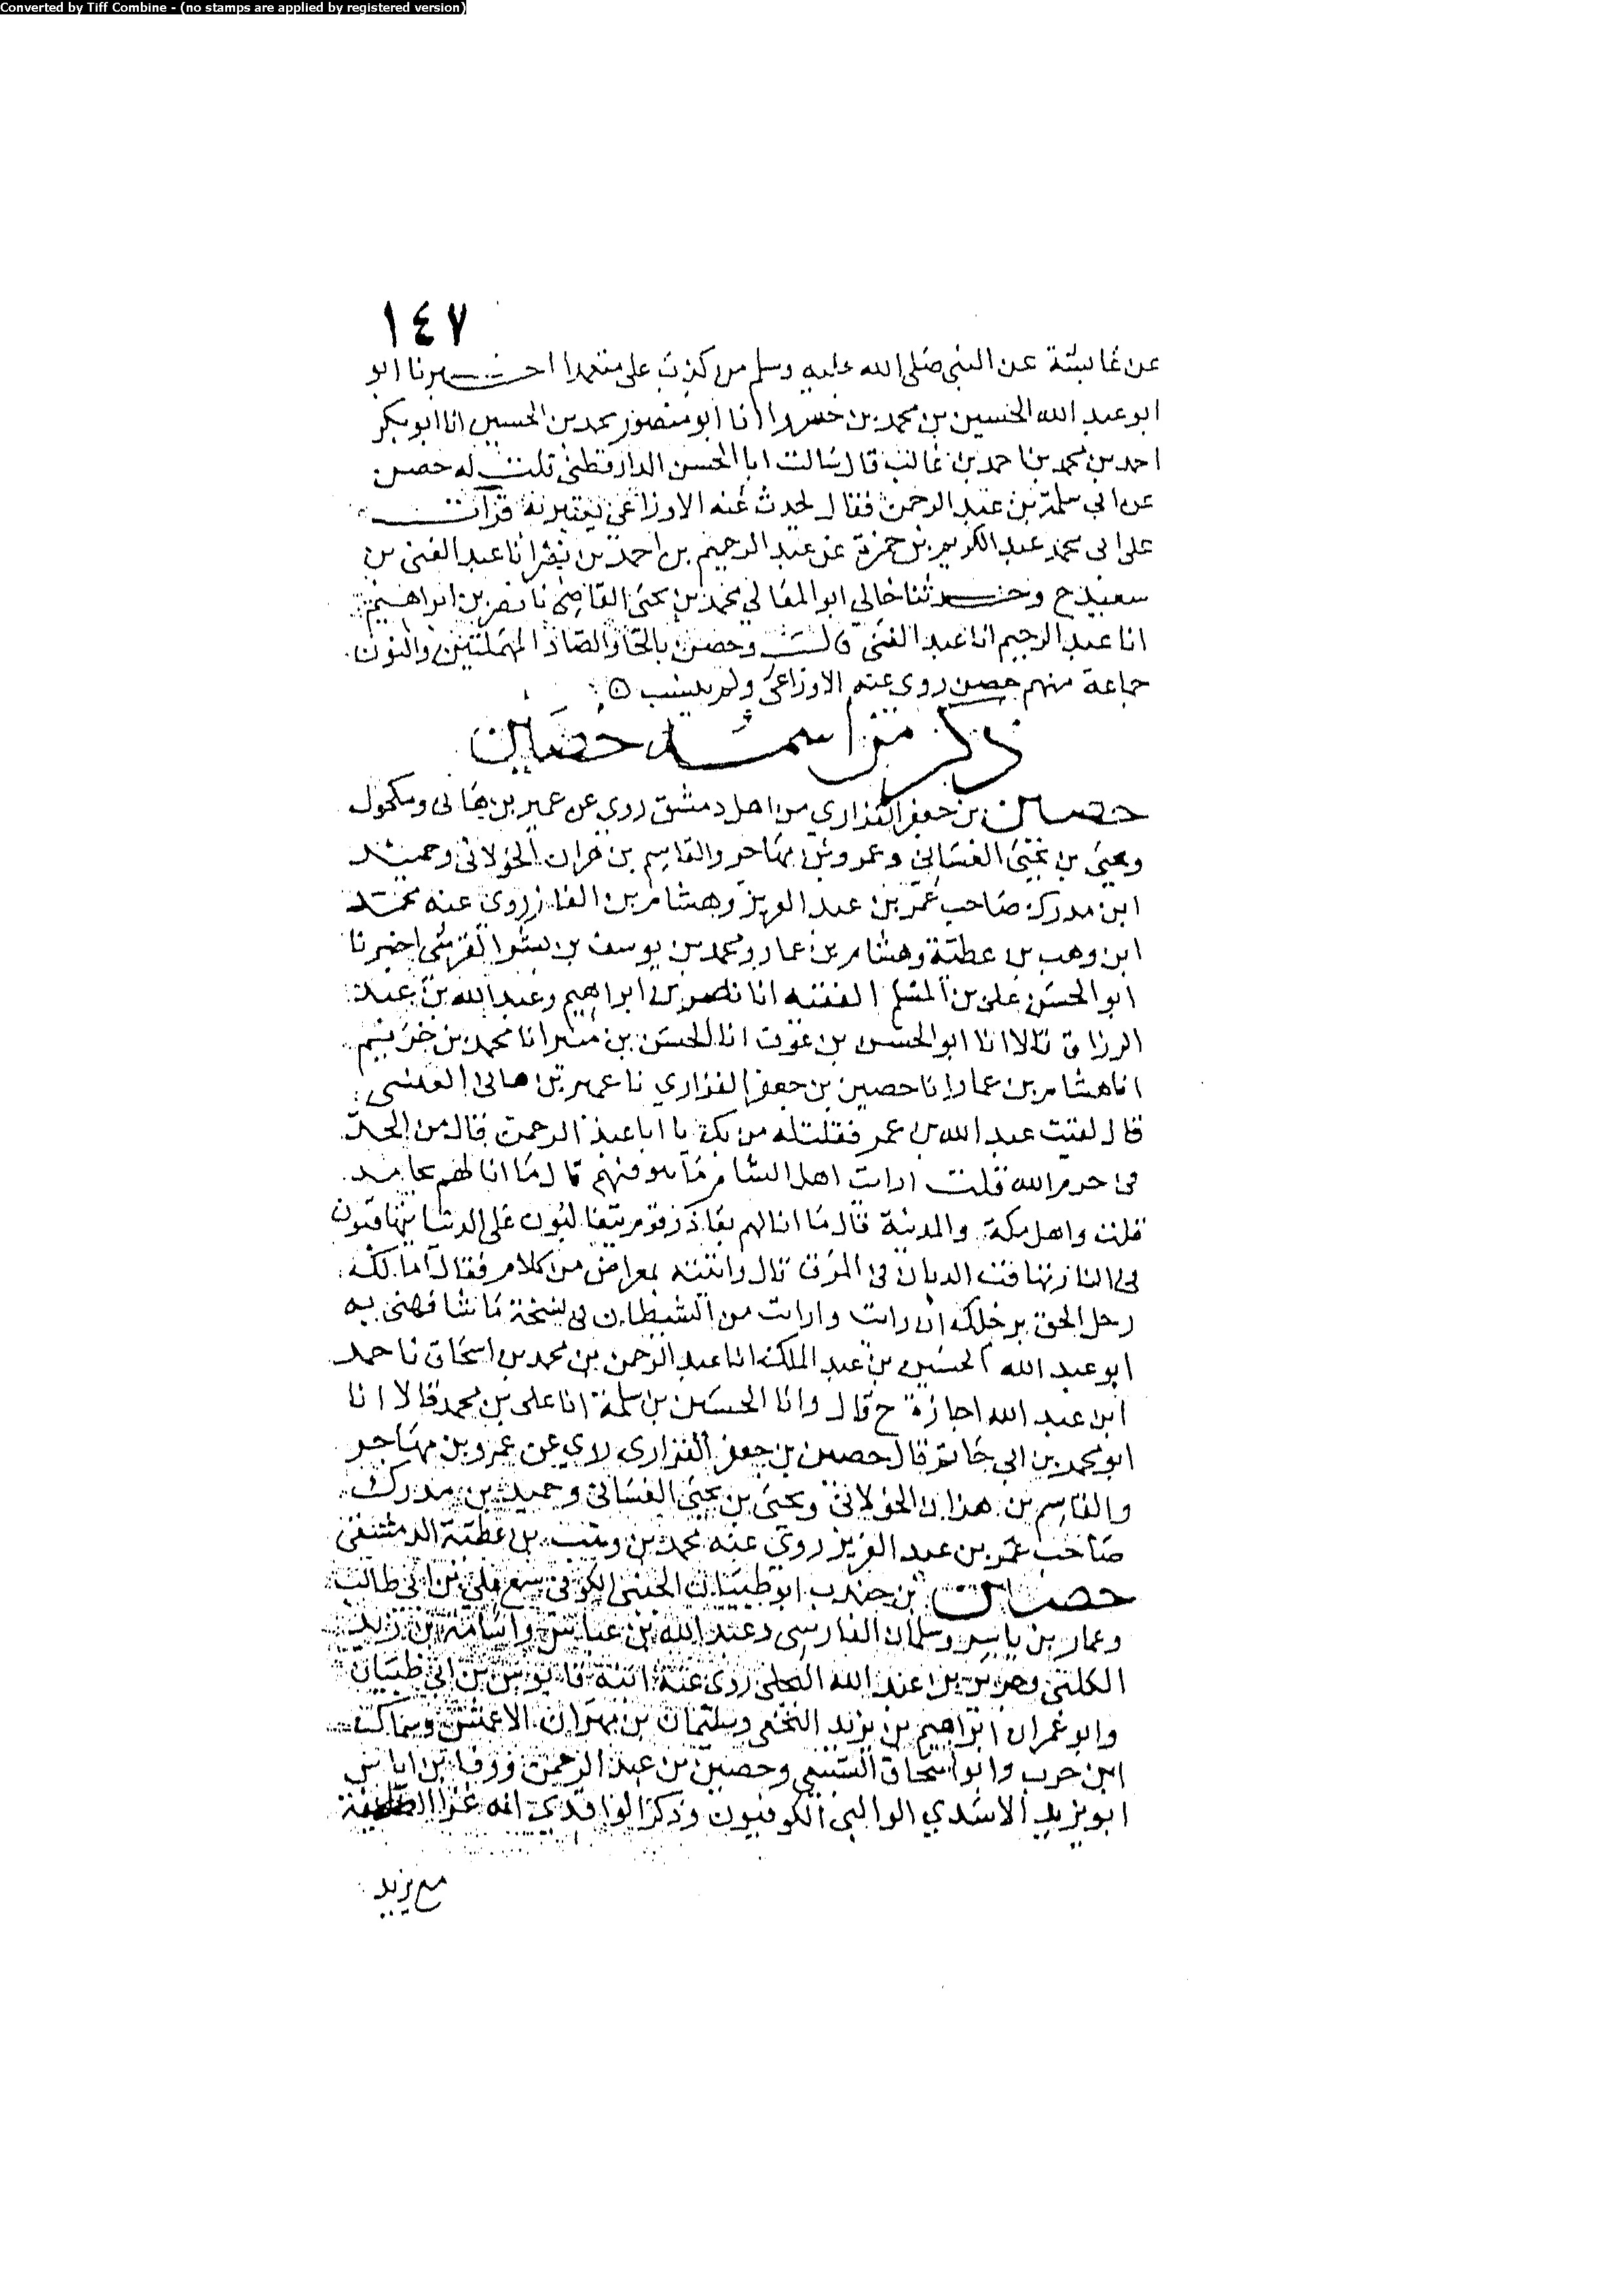 Converted by Tiff Combine - (no stamps are applied by registered version)
١٤٧
عن عائشة عن النبي صلى الله عليه وسلم من كذب على متعمدا اخبرنا ابو
ابو عبد الله الحسين بن محمد بن خسروا انا ابو منصور محمد بن الحسين انا ابو بكر
احمد بن محمد بن احمد بن غالب قال سالت ابا الحسن الدارقطني قلت له حصن
عن ابي سلمة بن عبد الرحمن فقال لحدث عنه الاوزاعي يعتبر به قرات
على ابى محمد عبد الكريم بن حمزة عن عبد الرحيم بن احمد بن نصر انا عبد الغني بن
سعيد ح وحدثنا خالي ابو المعالي محمد بن يحيى القاضى نا نصر بن ابراهيم
انا عبد الرحيم انا عبد الغنى قالت وحصن بالحا والصاد المهملتين والنون
جماعة منهم حصن روى عنه الاوزاعى ولم ينسب
ذكر من اسمه حصين
حصين بن جعفر الفزاري من اهل دمشق روي عن عمير بن هانى ومكحول
ويحيى بن يحيى الغسانى وعمرو بن مهاجر والقاسم بن هزان الخولانى وحميد
ابن مدرك صاحب عمر بن عبد العزيز وهشام بن الغاز روى عنه محمد
ابن وهب بن عطية وهشام بن عمار ومحمد بن يوسف بن بشر القرشى اخبرنا
ابو الحسن على بن المسلم الفقيه انا نصر بن ابراهيم وعبد الله بن عبد
الرزاق قالا انا ابو الحسن بن عوف انا الحسن بن منير انا محمد بن خزيم
انا هشام بن عمار انا حصين بن جعفر الفزاري نا عمير بن هانى العنسى
قال لقيت عبد الله بن عمر فقلت له من بكة يا ابا عبد الرحمن قال من الحد
فى حرم الله قلت ارايت اهل الشام قال ما انا لهم بحامد
قلت واهل مكة والمدينة قال ما انا لهم بعاذر قوم يتغالبون على الدنيا يتهافتون
فى النار تهافت الذبان فى المرق قال واتيته بمعارض من كلام فقال اما لك
رحل الحق برحلك ان رات وارات من الشيطان في نسخة ما شافهنى به
ابو عبد الله الحسين بن عبد الملك انا عبد الرحمن بن محمد بن اسحاق نا حمد
ابن عبد الله اجازة ح قال وانا الحسين بن سلمة انا على بن محمد قالا انا
ابو محمد بن ابى حاتم قال حصين بن جعفر الفزارى روي عن عمرو بن مهاجر
والقاسم بن هذان الخولانى ويحيى بن يحيى الغسانى وحميد بن مدرك
صاحب عمر بن عبد العزيز روي عنه محمد بن وهب بن عطية الدمشقى
حصين بن جندب ابو ظبيان الجنبى الكوفى سمع على بن ابى طالب
وعمار بن ياسر وسلمان الفارسي وعبد الله بن عباس واسامة بن زيد
الكلبى وجرير بن عبد الله البجلى روى عنه ابنه قابوس بن ابي ظبيان
وابو عمران ابراهيم بن يزيد النخعى وسليمان بن مهران الاعمش وسماك
ابن حرب وابو اسحاق السبيعى وحصين بن عبد الرحمن ووقا بن اياس
ابو يزيد الاسدي الوالبى الكوفيون وذكر الواقدي انه غزا
مع يزيد